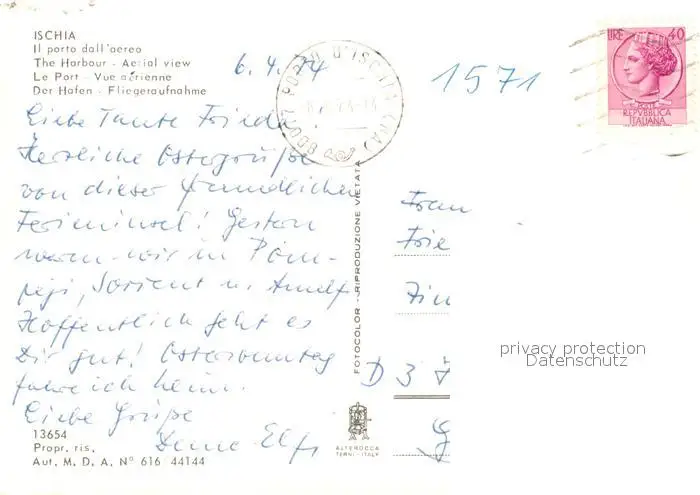 ISCHIA
Il porto dall'aereo
The Harbour - Aerial view
Le Port - Vue aérienne
Der Hafen - Fliegeraufnahme
6.4.74
80077 PORTO D'ISCHIA (NA)
1571
LIRE 40
POSTE
REPVBBLICA
ITALIANA
Liebe Tante Frieda
Herzliche Ostergrüße
von dieser freundlichen
Ferieninsel! Gestern
waren wir in Pom-
peji, Sorrent u. Amalfi
Hoffentlich geht es
Dir gut! Ostersonntag
fahre ich heim.
Liebe Grüße
Deine Elfi
Frau
Frie
Zim
D 3
FOTOCOLOR - RIPRODUZIONE VIETATA
privacy protection
Datenschutz
13654
Propr. ris.
Aut. M. D. A. N° 616 44144
ALTEROCCA
TERNI-ITALY